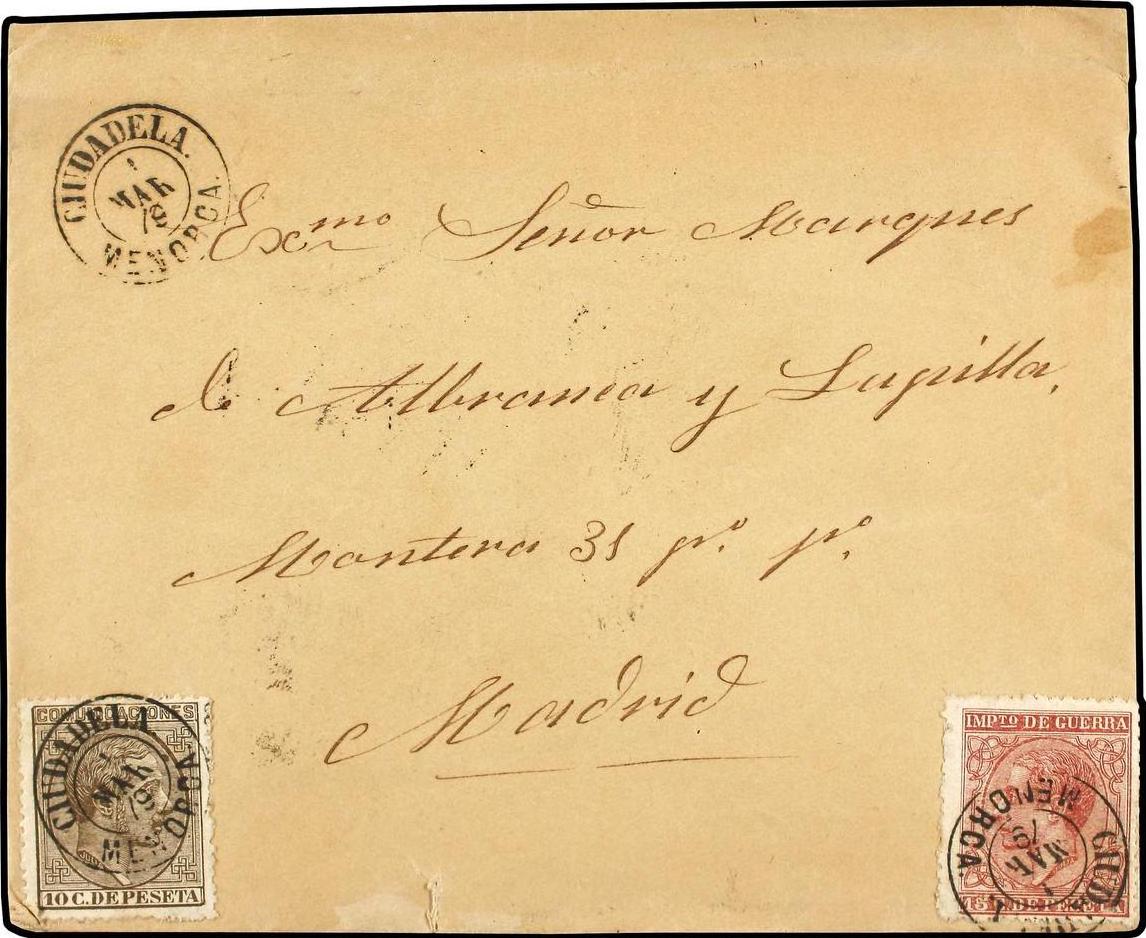 CIUDADELA.
1
MAR
79
MENORCA.
Exmo Señor Marques
de Albranca y Lapilla,
Montera 31 pº. pº.
Madrid
COMUNICACIONES
CIUDADELA
1
MAR
79
MENORCA
10 C. DE PESETA
IMPTO DE GUERRA
CIUDADELA
1
MAR
79
MENORCA.
15 C. DE PESETA